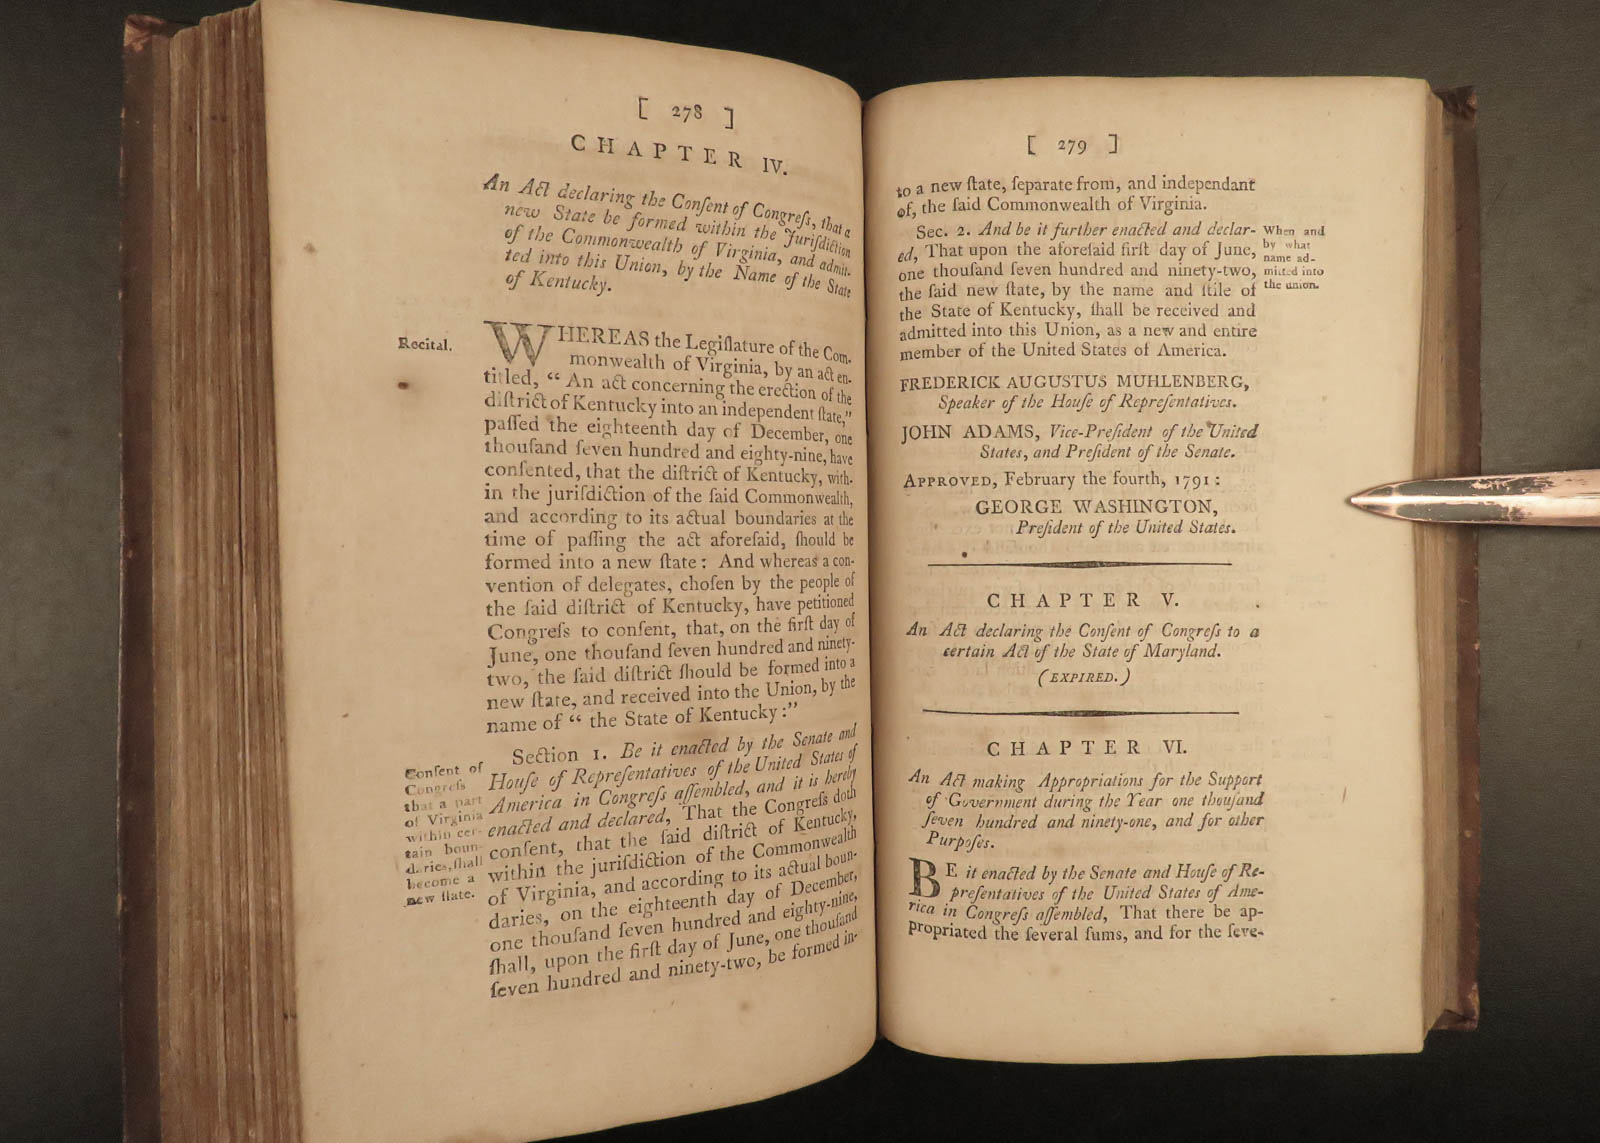 [ 278 ]
CHAPTER IV.
An Act declaring the Conſent of Congreſs, that a
new State be formed within the Juriſdiction
of the Commonwealth of Virginia, and admit-
ted into this Union, by the Name of the State
of Kentucky.
Recital.
WHEREAS the Legiſlature of the Com-
monwealth of Virginia, by an act en-
titled, “ An act concerning the erection of the
diſtrict of Kentucky into an independent ſtate,”
paſſed the eighteenth day of December, one
thouſand ſeven hundred and eighty-nine, have
conſented, that the diſtrict of Kentucky, with-
in the juriſdiction of the ſaid Commonwealth,
and according to its actual boundaries at the
time of paſſing the act aforeſaid, ſhould be
formed into a new ſtate : And whereas a con-
vention of delegates, choſen by the people of
the ſaid diſtrict of Kentucky, have petitioned
Congreſs to conſent, that, on the firſt day of
June, one thouſand ſeven hundred and ninety-
two, the ſaid diſtrict ſhould be formed into a
new ſtate, and received into the Union, by the
name of “ the State of Kentucky :”
Conſent of
Congreſs
that a part
of Virginia
within cer-
tain boun-
daries, ſhall
become a
new ſtate.
Section 1. Be it enacted by the Senate and
Houſe of Repreſentatives of the United States of
America in Congreſs aſſembled, and it is hereby
enacted and declared, That the Congreſs doth
conſent, that the ſaid diſtrict of Kentucky,
within the juriſdiction of the Commonwealth
of Virginia, and according to its actual boun-
daries, on the eighteenth day of December,
one thouſand ſeven hundred and eighty-nine,
ſhall, upon the firſt day of June, one thouſand
ſeven hundred and ninety-two, be formed in-
[ 279 ]
to a new ſtate, ſeparate from, and independant
of, the ſaid Commonwealth of Virginia.
Sec. 2. And be it further enacted and declar-
ed, That upon the aforeſaid firſt day of June,
one thouſand ſeven hundred and ninety-two,
the ſaid new ſtate, by the name and ſtile of
the State of Kentucky, ſhall be received and
admitted into this Union, as a new and entire
member of the United States of America.
When and
by what
name ad-
mitted into
the union.
FREDERICK AUGUSTUS MUHLENBERG,
Speaker of the Houſe of Repreſentatives.
JOHN ADAMS, Vice-Preſident of the United
States, and Preſident of the Senate.
APPROVED, February the fourth, 1791 :
GEORGE WASHINGTON,
Preſident of the United States.
CHAPTER V.
An Act declaring the Conſent of Congreſs to a
certain Act of the State of Maryland.
(EXPIRED.)
CHAPTER VI.
An Act making Appropriations for the Support
of Government during the Year one thouſand
ſeven hundred and ninety-one, and for other
Purpoſes.
BE it enacted by the Senate and Houſe of Re-
preſentatives of the United States of Ame-
rica in Congreſs aſſembled, That there be ap-
propriated the ſeveral ſums, and for the ſeve-